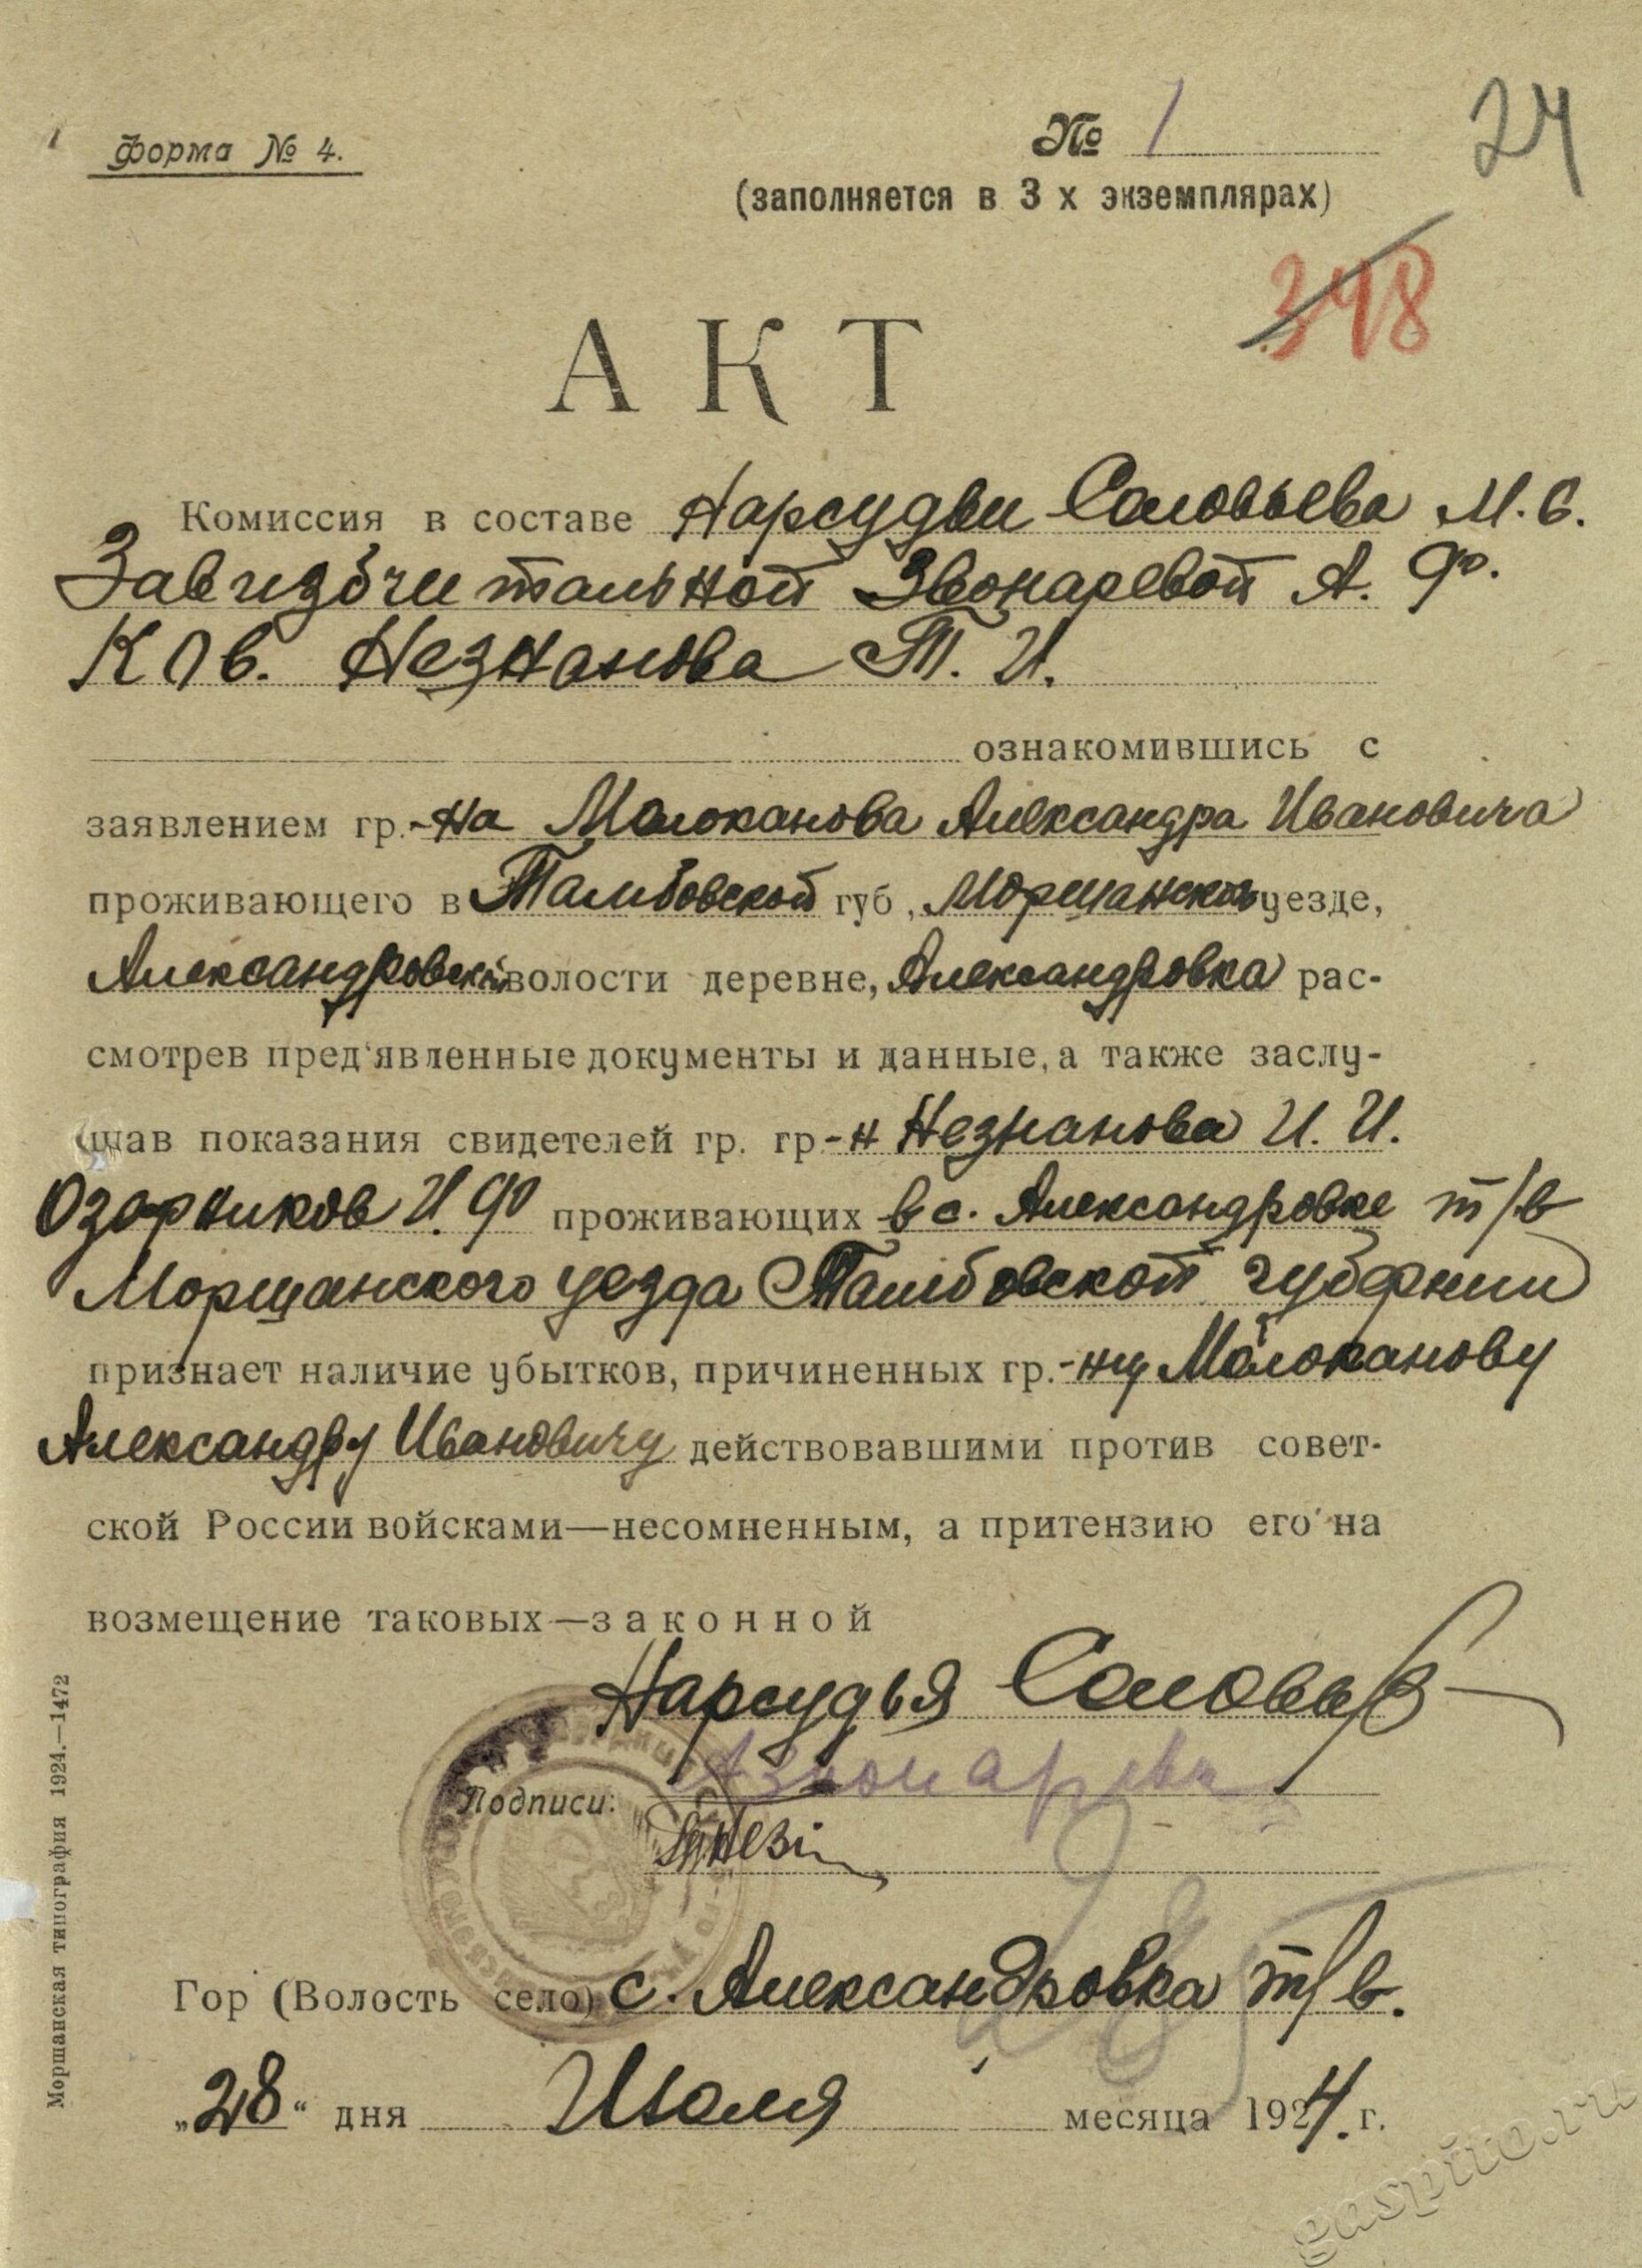 Форма № 4.
№ 1
24
(заполняется в 3 х экземплярах)
348
АКТ
Комиссия в составе Нарсудьи Соловьева М. С.
Звонаревой А. Ф.
Незнанова Т. И.
ознакомившись с
заявлением гр.-на Молоканова Александра Ивановича
проживающего в Тамбовской губ, Моршанском уезде,
Александровской волости деревне, Александровка рас-
смотрев пред'явленные документы и данные, а также заслу-
шав показания свидетелей гр. гр-н Незнанова И. И.
Озарников И. Ф проживающих в с. Александровке т/в
Моршанского уезда Тамбовской губернии
признает наличие убытков, причиненных гр.-ну Молоканову
Александру Ивановичу действовавшими против совет-
ской России войсками—несомненным, а притензию его на
возмещение таковых—законной
Нарсудья Соловьев
Подписи:
Гор (Волость село) с. Александровка т/в.
„28“ дня Июля месяца 1924. г.
Моршанская типография 1924.—1472
gaspito.ru